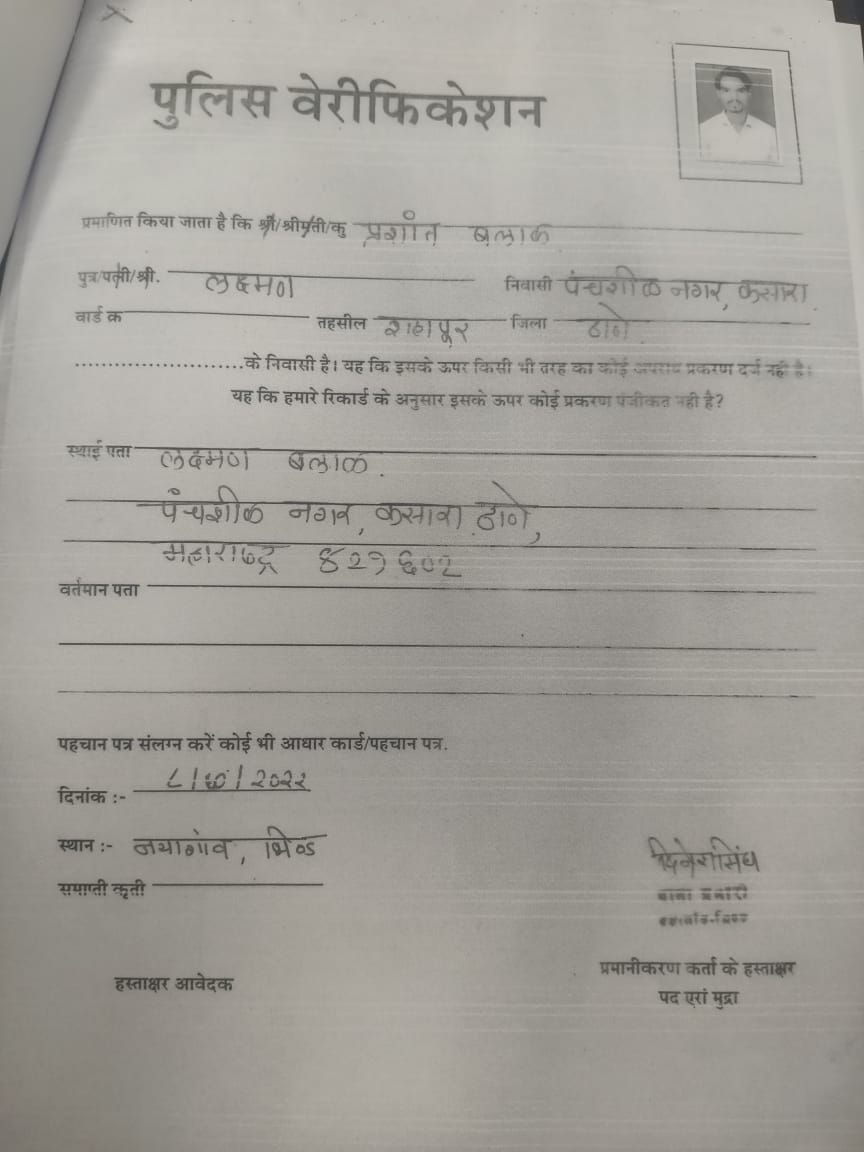 पुलिस वेरीफिकेशन
प्रमाणित किया जाता है कि श्री/श्रीमती/कु प्रशांत बलाळ
पुत्र/पत्नी/श्री. लक्ष्मण निवासी पंचशील नगर, कसारा
वार्ड क्र तहसील शहापूर जिला ठाणे
........................के निवासी है। यह कि इसके ऊपर किसी भी तरह का कोई अपराध प्रकरण दर्ज नही है।
यह कि हमारे रिकार्ड के अनुसार इसके ऊपर कोई प्रकरण पंजीकत नही है?
स्थाई एता लक्ष्मण बलाळ.
पंचशील नगर, कसारा ठाणे,
महाराष्ट्र ४२१६०२
वर्तमान पता
पहचान पत्र संलग्न करें कोई भी आधार कार्ड/पहचान पत्र.
दिनांक :- /२०२२
स्थान :- नयागांव, भिण्ड
समाप्ती कृती
दिनेशसिंघ
थाना प्रभारी
हस्ताक्षर आवेदक
प्रमानीकरण कर्ता के हस्ताक्षर
पद एरां मुद्रा